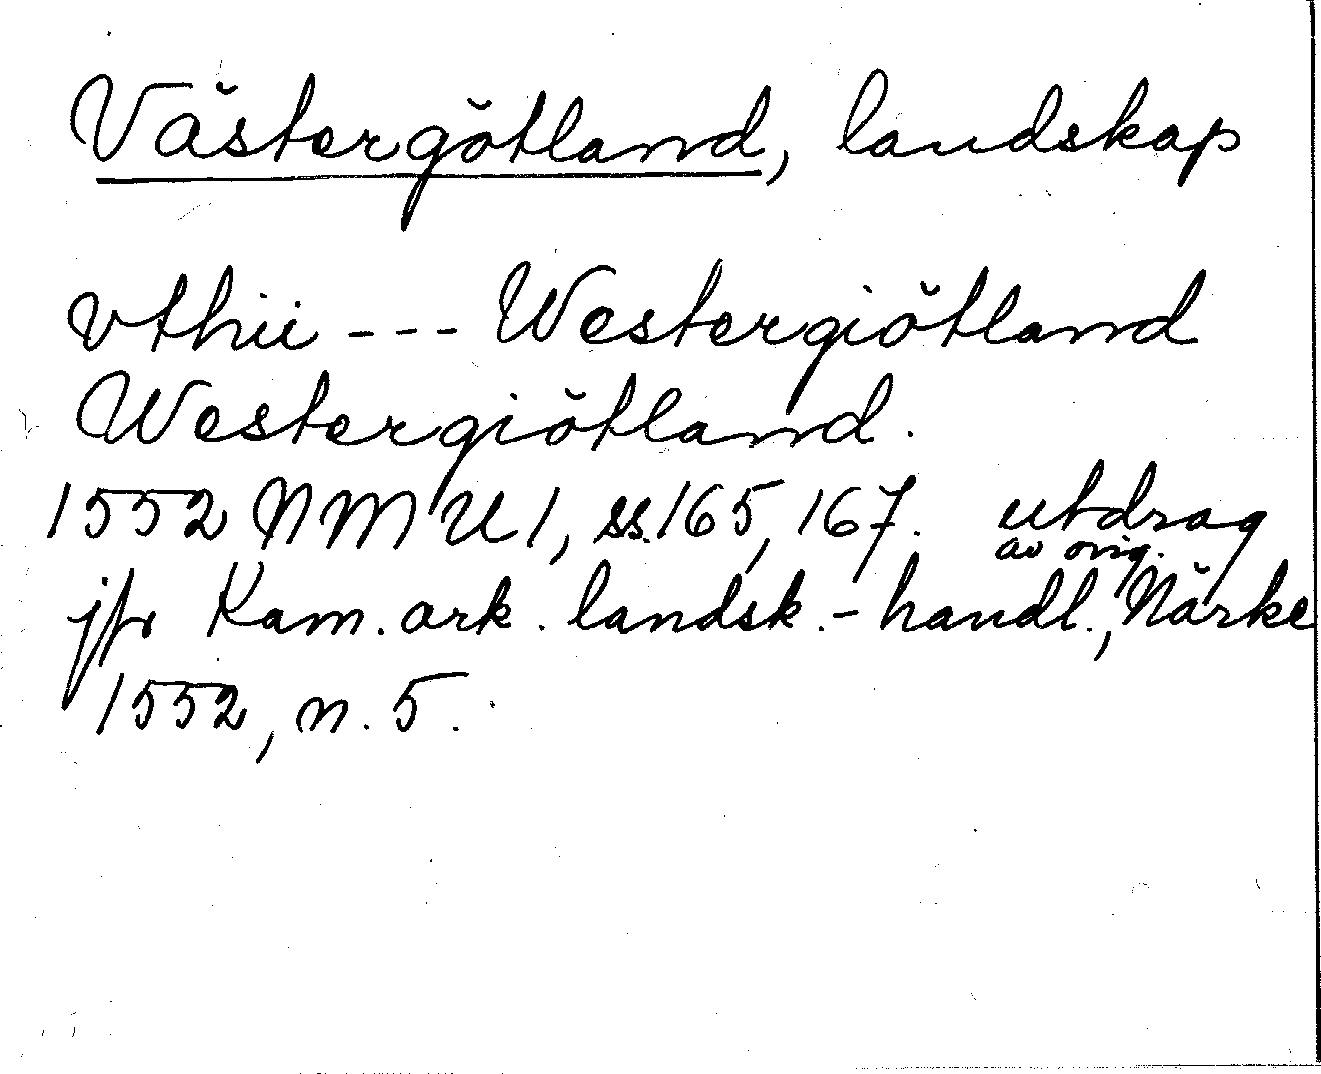 Västergötland, landskap
vthii --- Westergiötland
Westergiötland.
1552 NMU 1, ss. 165, 167. utdrag
av orig.
jfr Kam. ark. landsk.-handl., Närke
1552, n. 5.